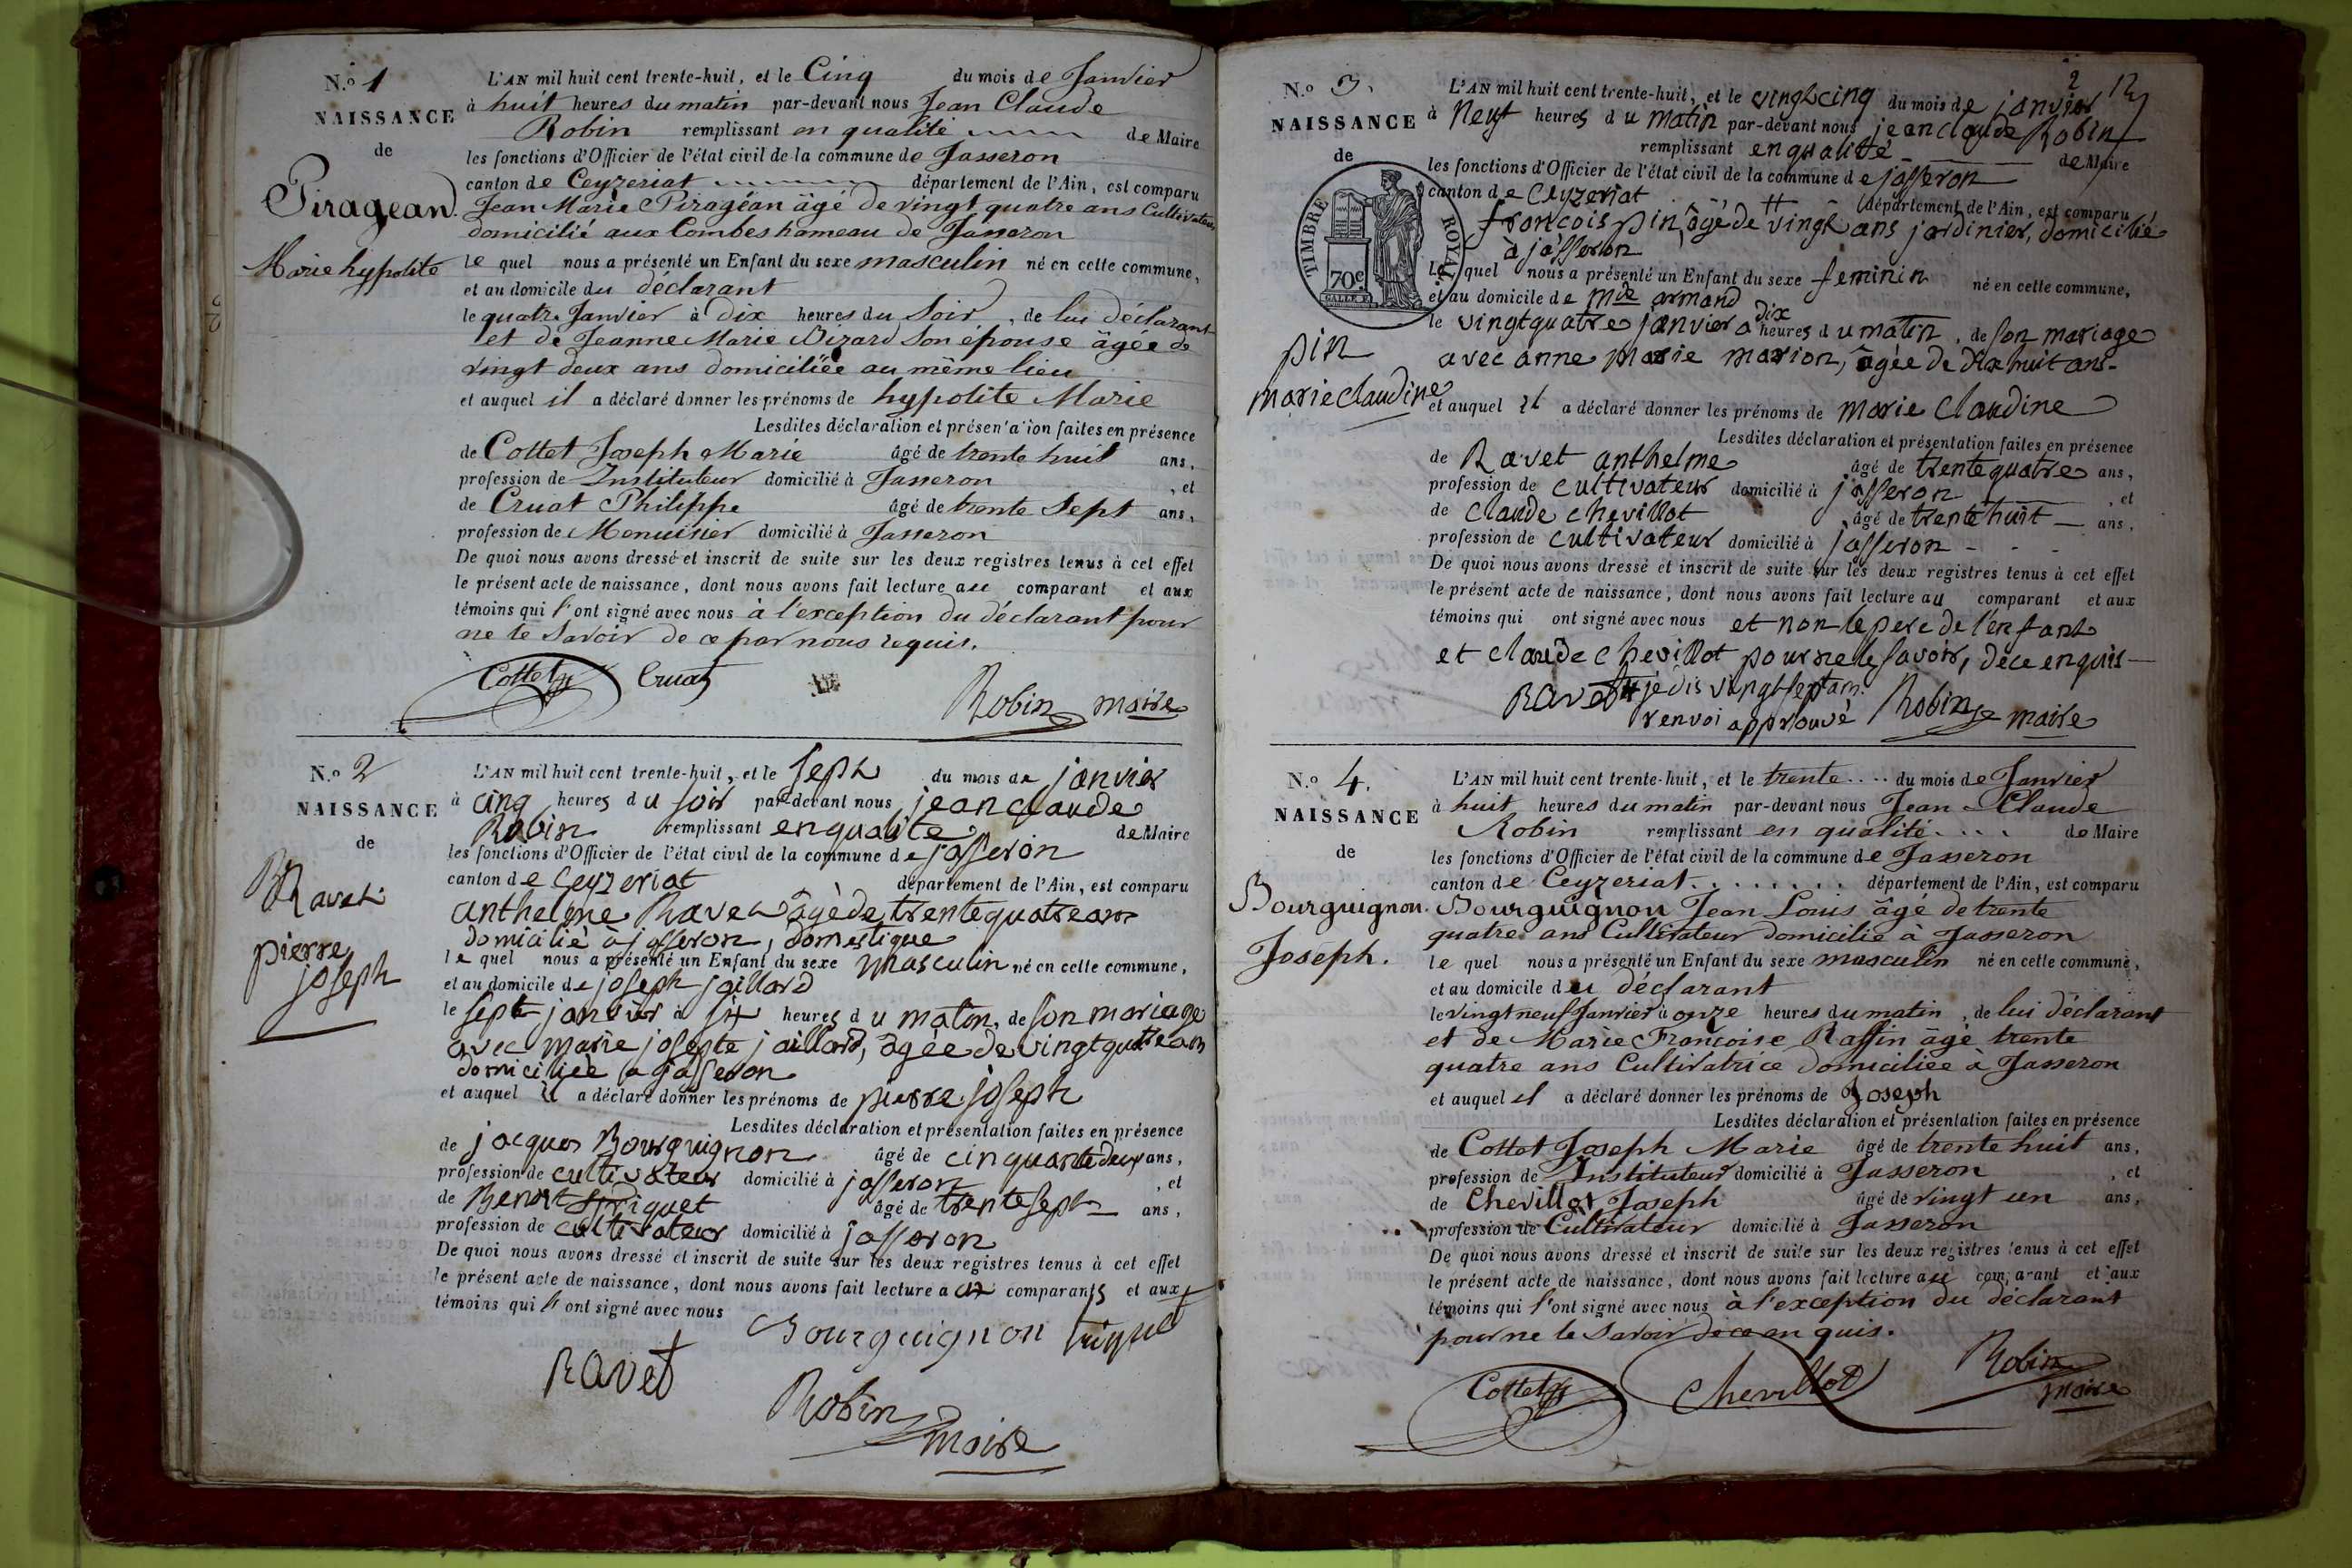 N.o 1
NAISSANCE
de
Piragean.
Marie hypolite
L'AN mil huit cent trente-huit, et le Cinq du mois de Janvier
à huit heures du matin par-devant nous Jean Claude
Robin remplissant en qualité de Maire
les fonctions d'Officier de l'état civil de la commune de Jasseron
canton de Ceyzeriat département de l'Ain, est comparu
Jean Marie Piragéan âgé de vingt quatre ans Cultivateur
domicilié aux Combes hameau de Jasseron
le quel nous a présenté un Enfant du sexe masculin né en cette commune,
et au domicile du déclarant
le quatre Janvier à dix heures du Soir, de lui déclarant
et de Jeanne Marie Bizard son épouse âgée de
vingt deux ans domiciliée au même lieu
et auquel il a déclaré donner les prénoms de hypolite Marie
Lesdites déclaration et présentation faites en présence
de Cottet Joseph Marie âgé de trente huit ans,
profession de Instituteur domicilié à Jasseron, et
de Cruat Philippe âgé de trente Sept ans,
profession de Menuisier domicilié à Jasseron
De quoi nous avons dressé et inscrit de suite sur les deux registres tenus à cet effet
le présent acte de naissance, dont nous avons fait lecture au comparant et aux
témoins qui l'ont signé avec nous à l'exception du déclarant pour
ne le Savoir de ce par nous requis.
Cottet Cruat
Robin maire
N.o 2
NAISSANCE
de
Ravet
pierre
joseph
L'AN mil huit cent trente-huit, et le sept du mois de janvier
à cinq heures du soir par-devant nous jean claude
Robin remplissant en qualité de Maire
les fonctions d'Officier de l'état civil de la commune de jasseron
canton de Ceyzeriat département de l'Ain, est comparu
anthelme Ravet âgé de trente quatre ans
domicilié à jasseron, domestique
le quel nous a présenté un Enfant du sexe masculin né en cette commune,
et au domicile de joseph jaillard
le sept janvier à six heures du matin, de son mariage
avec marie josepte jaillard, âgée de vingt quatre ans
domiciliée a jasseron
et auquel il a déclaré donner les prénoms de pierre joseph
Lesdites déclaration et présentation faites en présence
de jacques Bourguignon âgé de cinquante deux ans,
profession de cultivateur domicilié à jasseron, et
de Benoit triquet âgé de trente sept ans,
profession de cultivateur domicilié à jasseron
De quoi nous avons dressé et inscrit de suite sur les deux registres tenus à cet effet
le présent acte de naissance, dont nous avons fait lecture aux comparants et aux
témoins qui l'ont signé avec nous
Bourguignon triquet
Ravet
Robin
maire
2
N.o 3.
NAISSANCE
de
TIMBRE ROYAL
70c
pin
marie claudine
L'AN mil huit cent trente-huit, et le vingt cinq du mois de janvier
à neuf heures du matin par-devant nous jean claude Robin
remplissant en qualité de Maire
les fonctions d'Officier de l'état civil de la commune de jasseron
canton de Ceyzeriat département de l'Ain, est comparu
françois pin, âgé de vingt ans jardinier, domicilié
à jasseron
Le quel nous a présenté un Enfant du sexe feminin né en cette commune,
et au domicile de mde armand
le vingtquatre janvier a dix heures du matin, de son mariage
avec anne marie marion, âgée de dix huit ans-
et auquel il a déclaré donner les prénoms de marie claudine
Lesdites déclaration et présentation faites en présence
de Ravet anthelme âgé de trente quatre ans,
profession de cultivateur domicilié à jasseron, et
de claude chevillot âgé de trente huit ans,
profession de cultivateur domicilié à jasseron
De quoi nous avons dressé et inscrit de suite sur les deux registres tenus à cet effet
le présent acte de naissance, dont nous avons fait lecture au comparant et aux
témoins qui ont signé avec nous et non le pere de l'enfant
et claude chevillot pour ne le savoir, de ce enquis
Ravet je dis vingt sept ans.
renvoi approuvé Robin maire
N.o 4.
NAISSANCE
de
Bourguignon.
Joseph.
L'AN mil huit cent trente-huit, et le trente du mois de Janvier
à huit heures du matin par-devant nous Jean Claude
Robin remplissant en qualité de Maire
les fonctions d'Officier de l'état civil de la commune de Jasseron
canton de Ceyzeriat département de l'Ain, est comparu
Bourguignon Jean Louis âgé de trente
quatre ans Cultivateur domicilié à Jasseron
le quel nous a présenté un Enfant du sexe masculin né en cette commune,
et au domicile du déclarant
le vingt neuf Janvier à onze heures du matin, de lui déclarant
et de Marie Francoise Raffin âgé trente
quatre ans Cultivatrice domiciliée à Jasseron
et auquel il a déclaré donner les prénoms de Joseph
Lesdites déclaration et présentation faites en présence
de Cottet Joseph Marie âgé de trente huit ans,
profession de Instituteur domicilié à Jasseron, et
de Chevillot Joseph âgé de vingt un ans,
profession de Cultivateur domicilié à Jasseron
De quoi nous avons dressé et inscrit de suite sur les deux registres tenus à cet effet
le présent acte de naissance, dont nous avons fait lecture au comparant et aux
témoins qui l'ont signé avec nous à l'exception du déclarant
pour ne le Savoir de ce en quis.
Cottet Chevillot Robin
maire